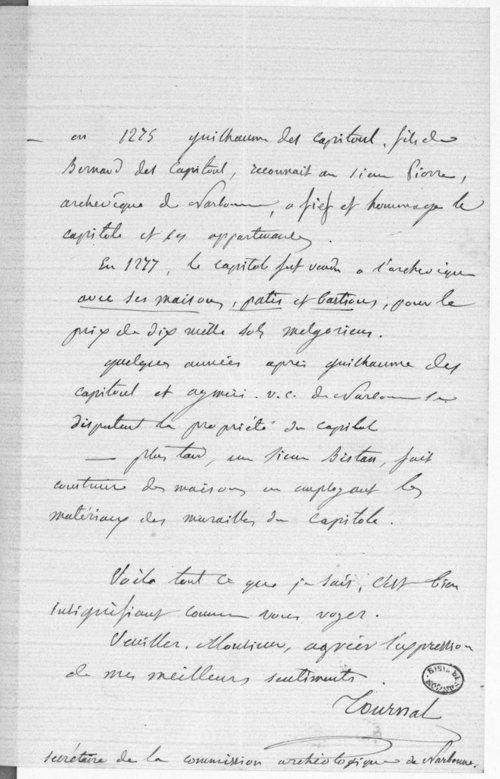 — en 1275 guilhaume des capitoul, fils de
Bernard des Capitoul, reconnait au sieur Pierre,
archevêque de Narbonne, a fief et hommage le
capitole et ses appartenances.
En 1277, le capitole fut vendu a l'archevêque
avec ses maisons, patis et bastions, pour le
prix de dix mille sols melgoriens.
quelques années après guilhaume des
capitoul et aymeri v.c. de Narbonne se
disputent la propriété du capitol
— plus tard, un sieur Bistan, fait
construire des maisons en employant les
matériaux des murailles du Capitole.
Voila tout ce que je sais, c'est bien
insignifiant comme vous voyez.
Veuillez, Monsieur, agréer l'expression
de mes meilleurs sentiments.
Tournal
secrétaire de la commission archéologique de Narbonne.